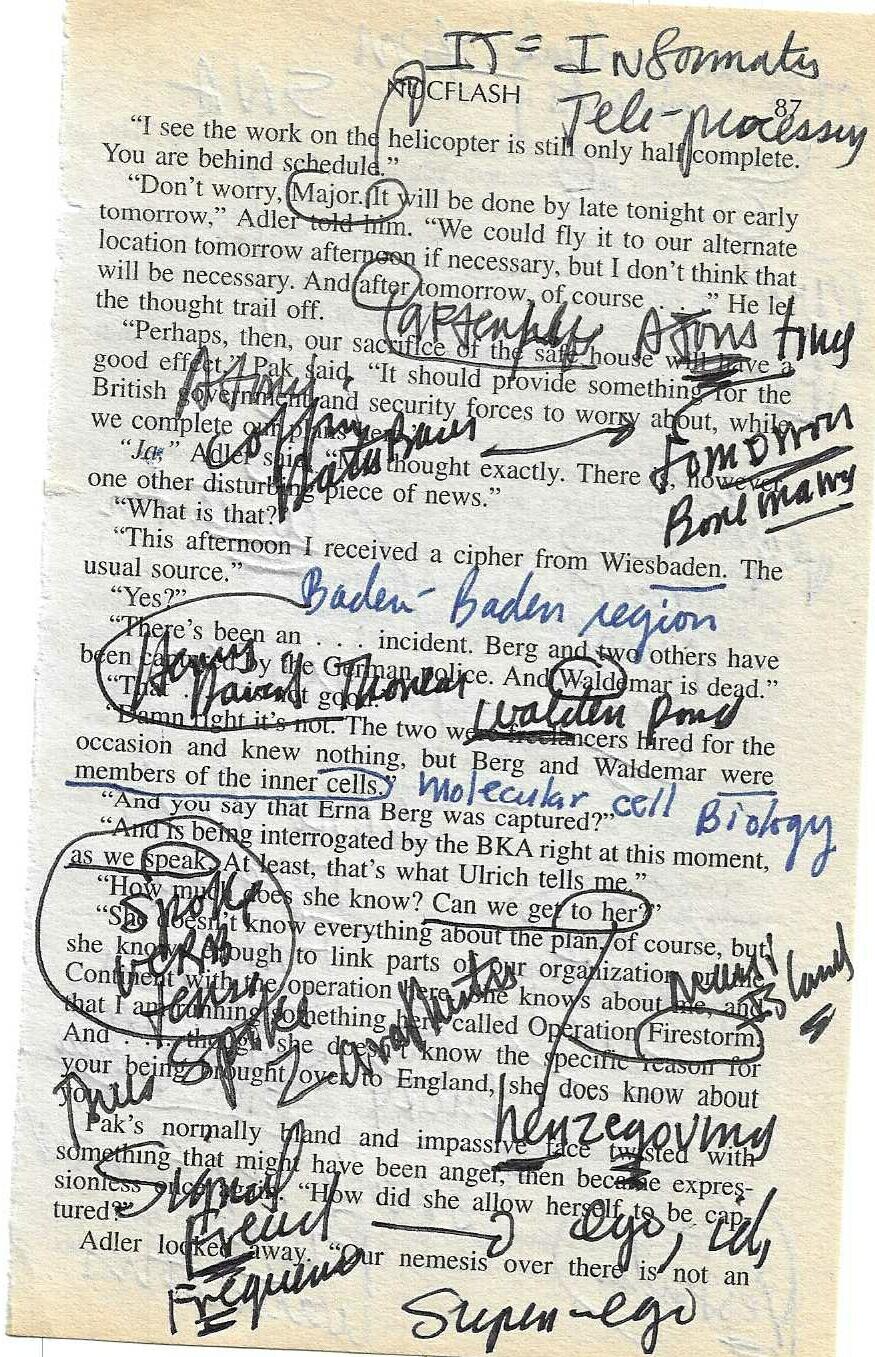 IT = Informatics
NUCFLASH
87
Tele-processing
"I see the work on the helicopter is still only half complete.
You are behind schedule."
"Don't worry, Major. It will be done by late tonight or early
tomorrow," Adler told him. "We could fly it to our alternate
location tomorrow afternoon if necessary, but I don't think that
will be necessary. And after tomorrow, of course . . ." He let
the thought trail off.
"Perhaps, then, our sacrifice of the safe house will have a
good effect," Pak said. "It should provide something for the
British government and security forces to worry about, while
we complete our plans here."
"Ja," Adler said. "My thought exactly. There is, however,
one other disturbing piece of news."
Tomorrow
"What is that?"
"This afternoon I received a cipher from Wiesbaden. The
usual source."
Baden-Baden region
"Yes?"
"There's been an . . . incident. Berg and two others have
been captured by the German police. And Waldemar is dead."
David Thoreau
"That . . . not good."
walden pond
"Damn right it's not. The two were freelancers hired for the
occasion and knew nothing, but Berg and Waldemar were
members of the inner cells."
molecular cell Biology
"And you say that Erna Berg was captured?"
"And is being interrogated by the BKA right at this moment,
as we speak. At least, that's what Ulrich tells me."
"How much does she know? Can we get to her?"
Spoke
"She doesn't know everything about the plan, of course, but
she knows enough to link parts of our organization on the
VERB
Continent with the operation here. She knows about me, and
Islands
Tense
that I am running something here called Operation Firestorm.
Spoke
And . . . though she doesn't know the specific reason for
your being brought over to England, she does know about
you."
Pak's normally bland and impassive face twisted with
something that might have been anger, then became expres-
Signal
sionless once again. "How did she allow herself to be cap-
tured?"
Freud
ego, id,
Adler looked away. "Our nemesis over there is not an
Super-ego